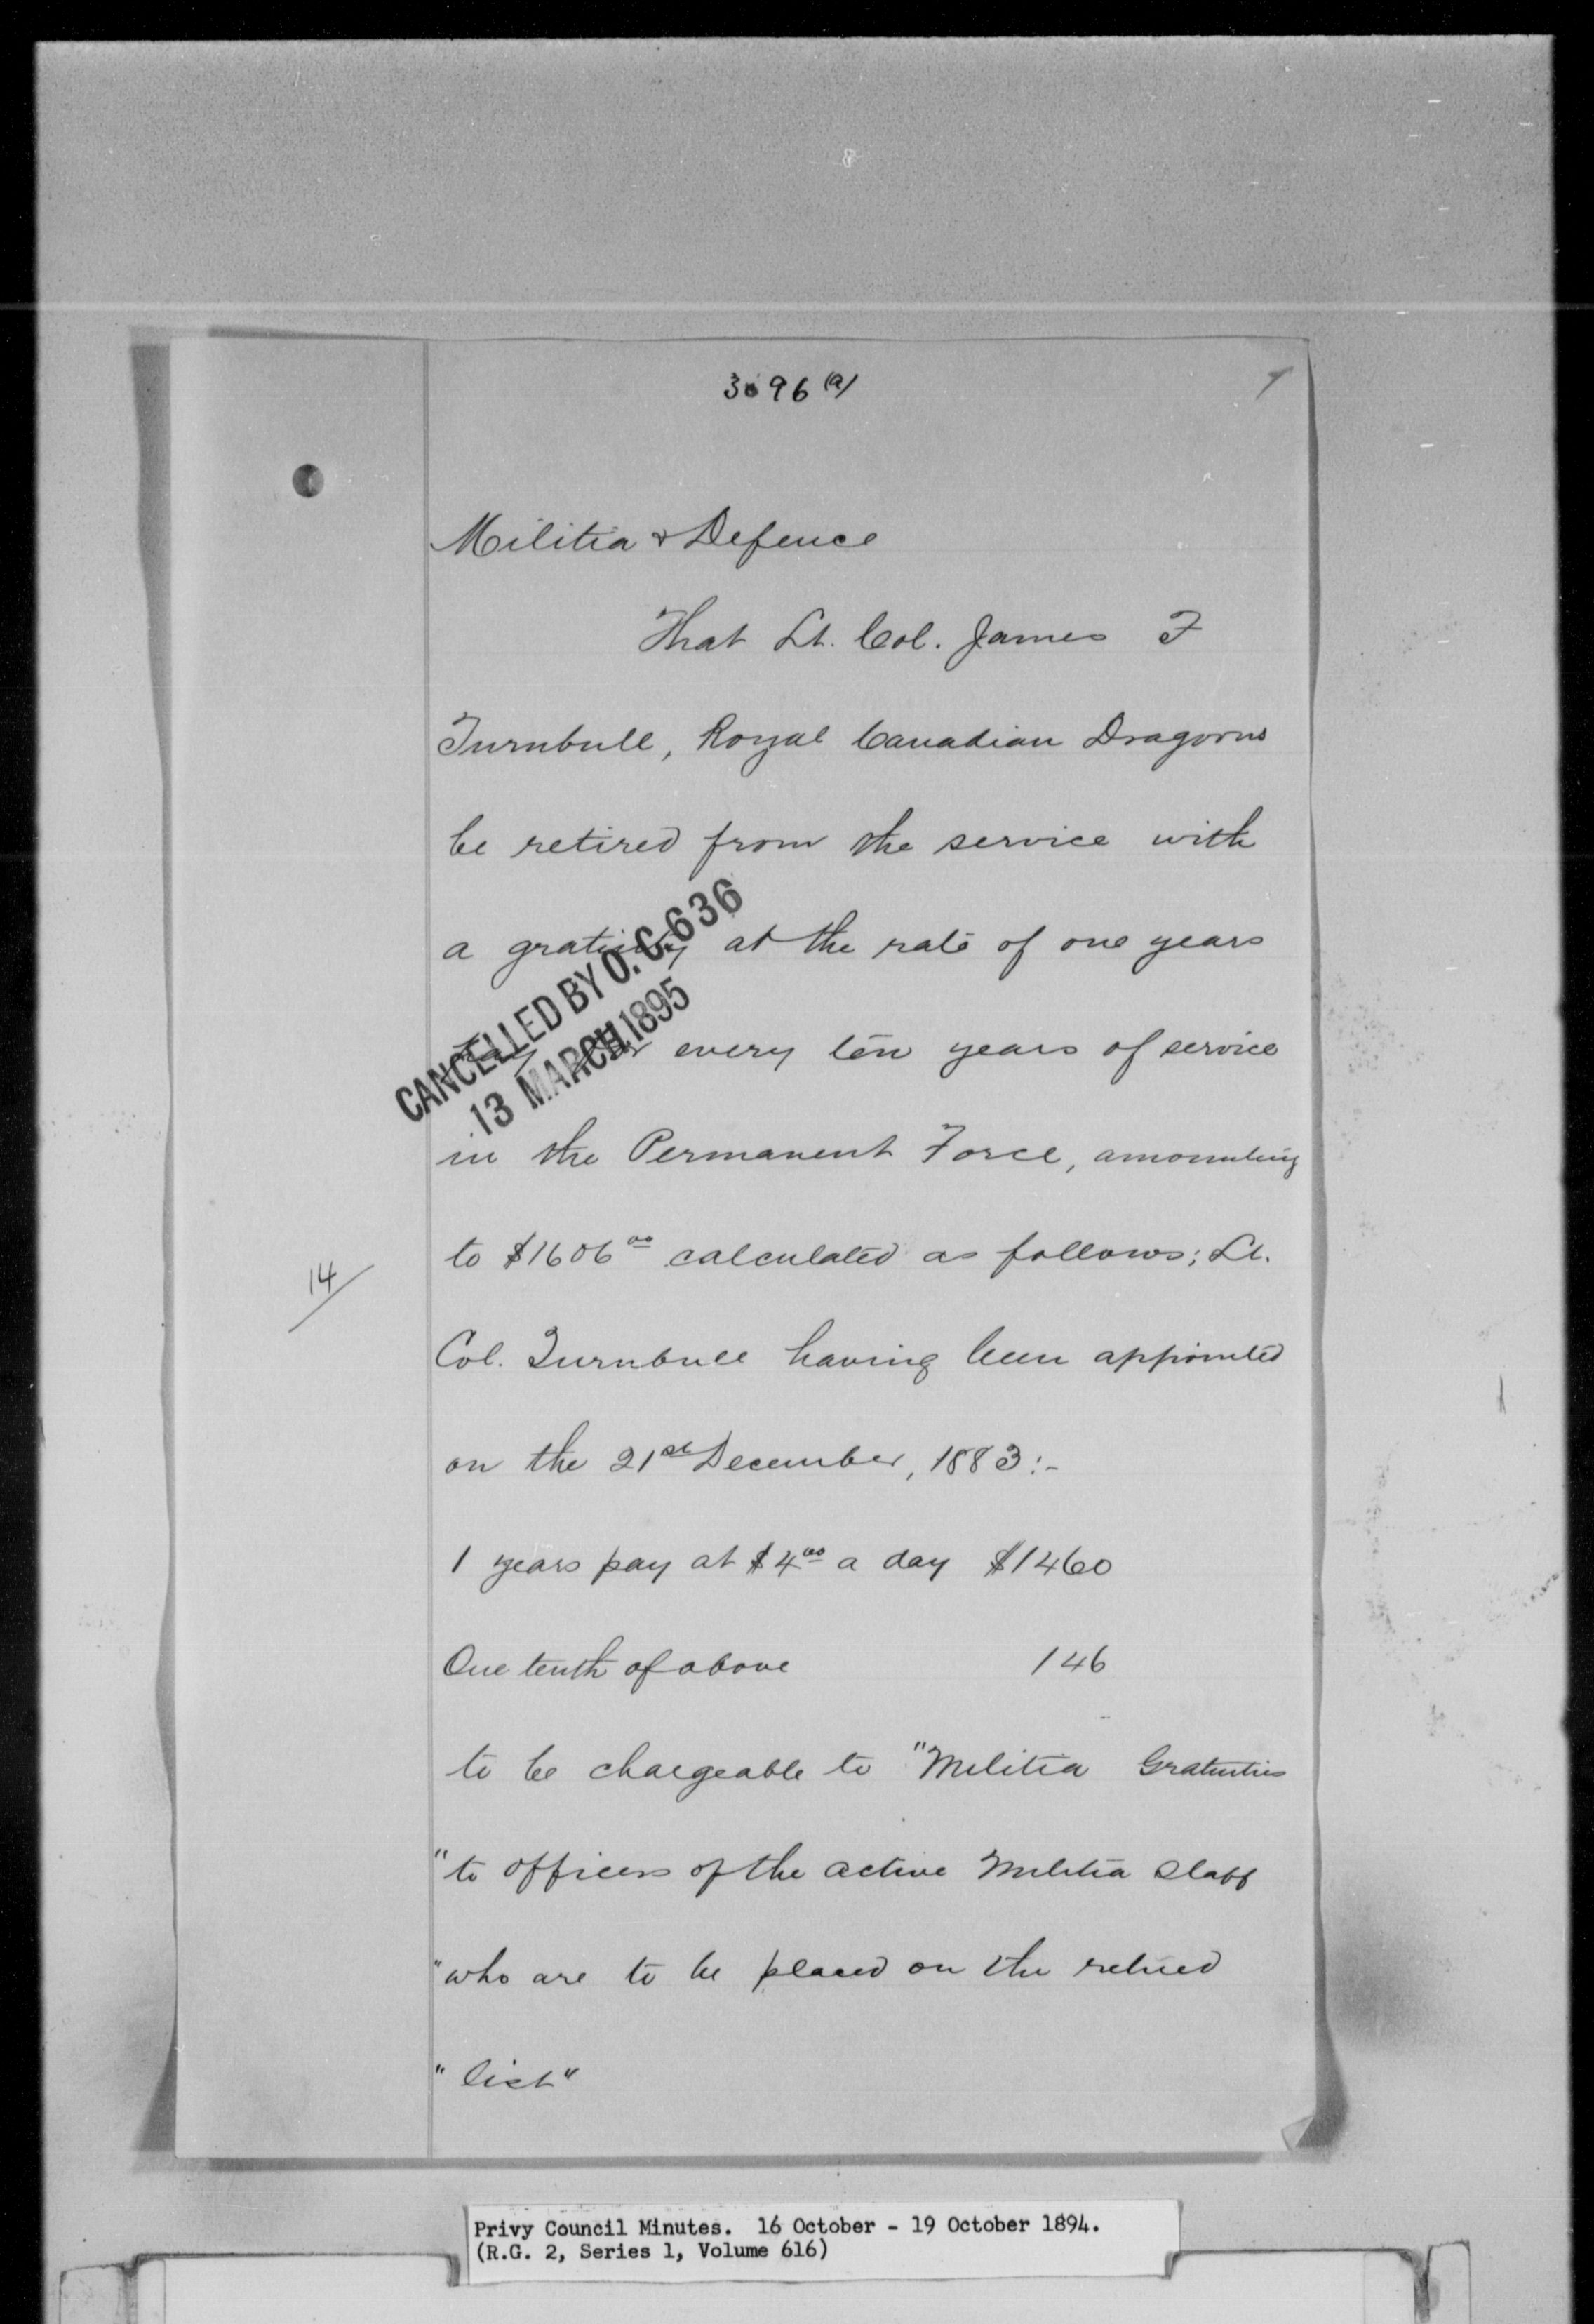 3096 (a)
Militia & Defence
That Lt. Col. James F
Turnbull, Royal Canadian Dragoons
be retired from the service with
a gratuity at the rate of one years
CANCELLED BY O.C. 636
13 MARCH 1895
pay for every ten years of service
in the Permanent Force, amounting
to $1606 00 calculated as follows; Lt.
14/
Col. Turnbull having been appointed
on the 21st December, 1883:-
1 years pay at $4 00 a day $1460
One tenth of above 146
to be chargeable to "Militia Gratuities
"to officers of the active Militia Staff
"who are to be placed on the retired
"list"
Privy Council Minutes. 16 October - 19 October 1894.
(R.G. 2, Series 1, Volume 616)